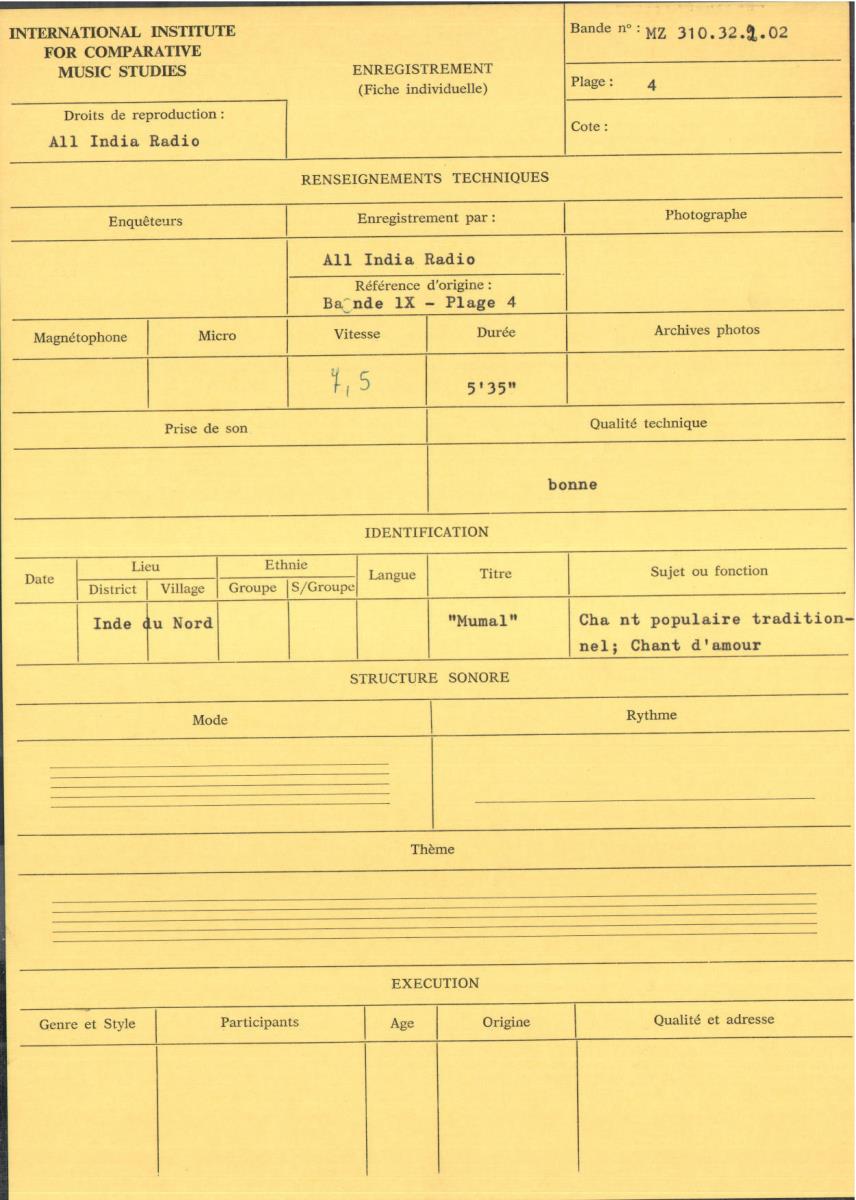 INTERNATIONAL INSTITUTE
FOR COMPARATIVE
MUSIC STUDIES
Droits de reproduction :
All India Radio
ENREGISTREMENT
(Fiche individuelle)
Bande nº : MZ 310.32.2.02
Plage : 4
Cote :
RENSEIGNEMENTS TECHNIQUES
Enquêteurs
Enregistrement par :
Photographe
All India Radio
Référence d'origine :
Ba nde 1X - Plage 4
Magnétophone
Micro
Vitesse
Durée
Archives photos
7,5
5'35"
Prise de son
Qualité technique
bonne
IDENTIFICATION
Date
Lieu
District
Village
Ethnie
Groupe
S/Groupe
Langue
Titre
Sujet ou fonction
Inde du Nord
"Mumal"
Cha nt populaire tradition-
nel; Chant d'amour
STRUCTURE SONORE
Mode
Rythme
Thème
EXECUTION
Genre et Style
Participants
Age
Origine
Qualité et adresse